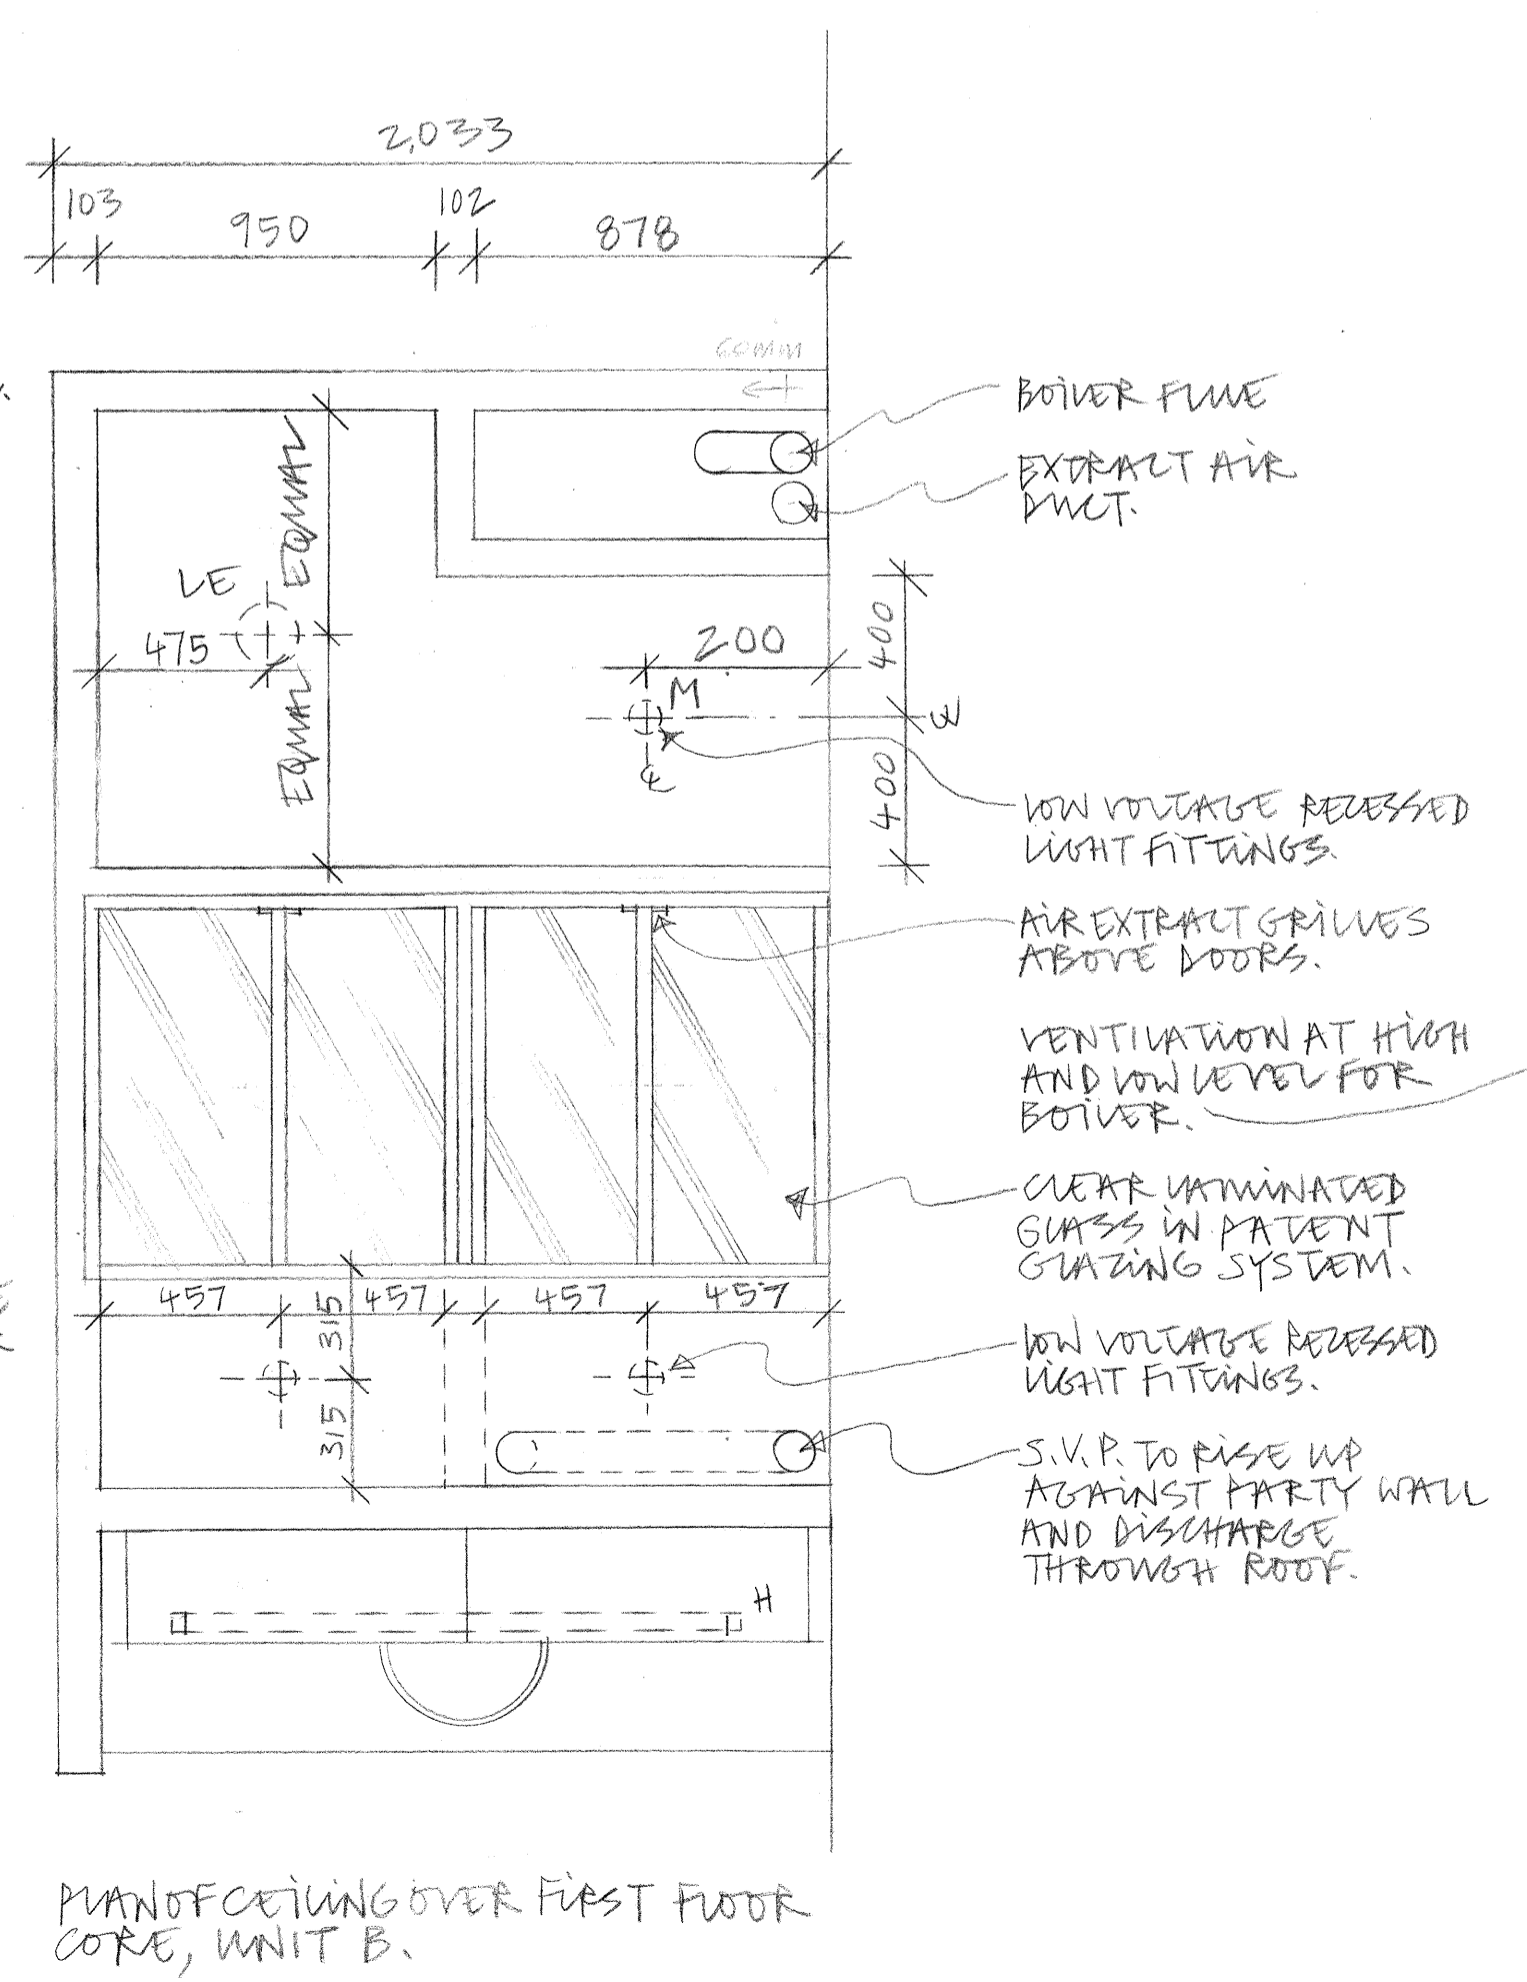 2,033
103
950
102
878
60mm
BOILER FLUE
EXTRACT AIR
DUCT.
EQUAL
LE
475
EQUAL
200
400
M
℄
℄
400
LOW VOLTAGE RECESSED
LIGHT FITTINGS.
AIR EXTRACT GRILLES
ABOVE DOORS.
VENTILATION AT HIGH
AND LOW LEVEL FOR
BOILER.
CLEAR LAMINATED
GLASS IN PATENT
GLAZING SYSTEM.
457
315
457
457
457
LOW VOLTAGE RECESSED
LIGHT FITTINGS.
315
S.V.P. TO RISE UP
AGAINST PARTY WALL
AND DISCHARGE
THROUGH ROOF.
H
PLAN OF CEILING OVER FIRST FLOOR
CORE, UNIT B.